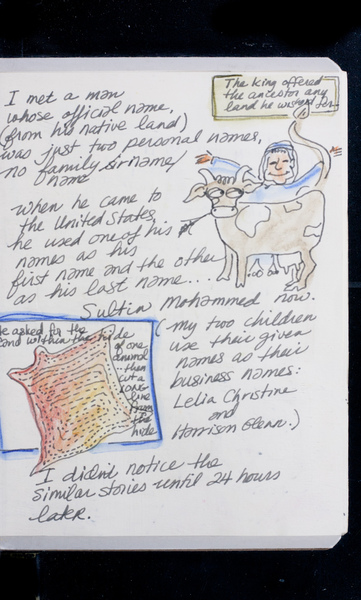 I met a man
whose official name,
(from his native land)
was just two personal names,
no family sirname/
name
The King offered
the ancestor any
land he wished for
when he came to
the United States,
he used one of his
names as his
first name and the other
as his last name...
Sultin Mohammed now.
He asked for the
land within the hide
of one
animal
then
cut a
long
line
from
the
hide
(my two children
use their given
names as their
business names:
Lelia Christine
and
Harrison Glenn.)
I didn't notice the
similar stories until 24 hours
later.